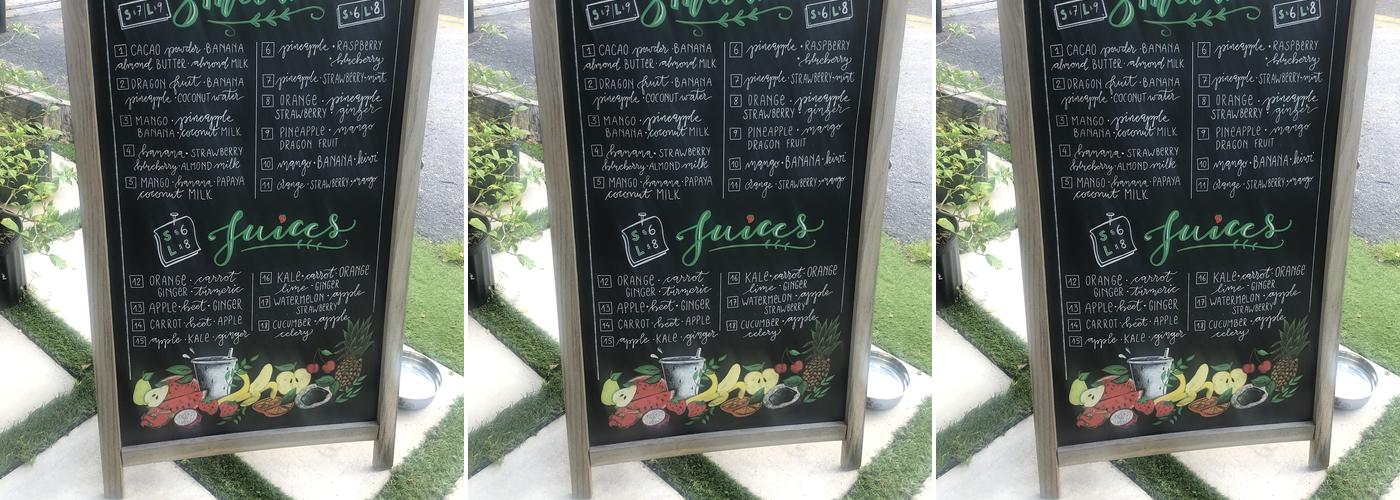 S $7 L $9
S $6 L $8
1 CACAO powder · BANANA
almond BUTTER · almond MILK
2 DRAGON fruit · BANANA
pineapple · COCONUT water
3 MANGO · pineapple
BANANA · coconut MILK
4 banana · STRAWBERRY
blueberry · ALMOND milk
5 MANGO · banana · PAPAYA
coconut MILK
6 pineapple · RASPBERRY
· blueberry
7 pineapple · STRAWBERRY · mint
8 ORANGE · pineapple
STRAWBERRY · ginger
9 PINEAPPLE · mango
DRAGON FRUIT
10 mango · BANANA · kiwi
11 orange · STRAWBERRY · mango
S $6
L $8
Juices
12 ORANGE · carrot
GINGER · turmeric
13 APPLE · beet · GINGER
14 CARROT · beet · APPLE
15 apple · KALE · ginger
16 KALE · carrot · ORANGE
lime · GINGER
17 WATERMELON · apple
STRAWBERRY
18 CUCUMBER · apple
celery
S $7 L $9
S $6 L $8
1 CACAO powder · BANANA
almond BUTTER · almond MILK
2 DRAGON fruit · BANANA
pineapple · COCONUT water
3 MANGO · pineapple
BANANA · coconut MILK
4 banana · STRAWBERRY
blueberry · ALMOND milk
5 MANGO · banana · PAPAYA
coconut MILK
6 pineapple · RASPBERRY
· blueberry
7 pineapple · STRAWBERRY · mint
8 ORANGE · pineapple
STRAWBERRY · ginger
9 PINEAPPLE · mango
DRAGON FRUIT
10 mango · BANANA · kiwi
11 orange · STRAWBERRY · mango
S $6
L $8
Juices
12 ORANGE · carrot
GINGER · turmeric
13 APPLE · beet · GINGER
14 CARROT · beet · APPLE
15 apple · KALE · ginger
16 KALE · carrot · ORANGE
lime · GINGER
17 WATERMELON · apple
STRAWBERRY
18 CUCUMBER · apple
celery
S $7 L $9
S $6 L $8
1 CACAO powder · BANANA
almond BUTTER · almond MILK
2 DRAGON fruit · BANANA
pineapple · COCONUT water
3 MANGO · pineapple
BANANA · coconut MILK
4 banana · STRAWBERRY
blueberry · ALMOND milk
5 MANGO · banana · PAPAYA
coconut MILK
6 pineapple · RASPBERRY
· blueberry
7 pineapple · STRAWBERRY · mint
8 ORANGE · pineapple
STRAWBERRY · ginger
9 PINEAPPLE · mango
DRAGON FRUIT
10 mango · BANANA · kiwi
11 orange · STRAWBERRY · mango
S $6
L $8
Juices
12 ORANGE · carrot
GINGER · turmeric
13 APPLE · beet · GINGER
14 CARROT · beet · APPLE
15 apple · KALE · ginger
16 KALE · carrot · ORANGE
lime · GINGER
17 WATERMELON · apple
STRAWBERRY
18 CUCUMBER · apple
celery